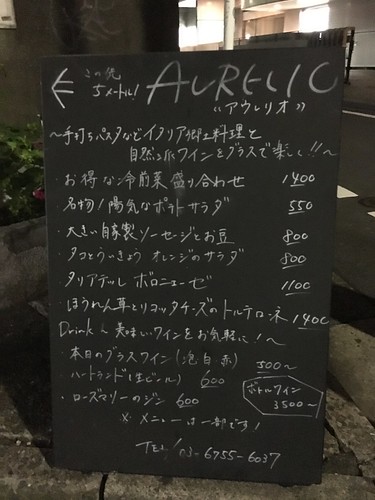 ← この先 5メートル! AURELIO
《アウレリオ》
~手打ちパスタなどイタリア郷土料理と
自然派ワインをグラスで楽しく!!~
・お得な冷前菜盛り合わせ 1400
名物!陽気なポテトサラダ 550
・大きい自家製ソーセージとお豆 800
・タコとういきょう オレンジのサラダ 800
・タリアテッレ ボロニェーゼ 1100
・ほうれん草とリコッタチーズのトルテローネ 1400
Drink ~美味しいワインをお気軽に!~
・本日のグラスワイン(泡白赤) 500~
・ハートランド(生ビール) 600
・ローズマリーのジン 600
ボトルワイン
3500~
※メニューは一部です!
TEL! 03-6755-6037